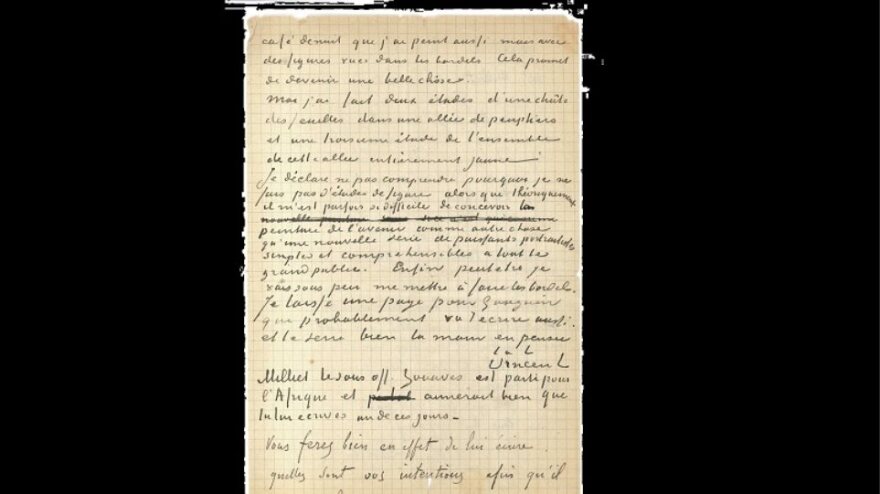 café de nuit que j'ai peint aussi mais avec
des figures vues dans les bordels. Cela promet
de devenir une belle chose.
moi j'ai fait deux études d'une chûte
des feuilles dans une allée de peupliers
et une troisieme étude de l'ensemble
de cette allée entièrement jaune
Je déclare ne pas comprendre pourquoi je ne
fais pas d'études de figure alors que théoriquement
il m'est parfois si difficile de concevoir la
peinture de l'avenir comme autre chose
qu'une nouvelle série de puissants portraitistes
simples et compréhensibles à tout le
grand public. Enfin peut etre je
vais sous peu me mettre à faire les bordels.
Je laisse une page pour Gauguin
que probablement va t'ecrire aussi.
et te serre bien la main en pensée
t. à t.
Vincent
Milliet le sous off. Zouaves est parti pour
l'Afrique et aimerait bien que
tu lui ecrives un de ces jours.-
Vous ferez bien en effet de lui écrire
quelles sont vos intentions afin qu'il